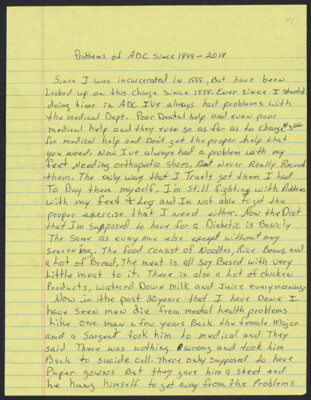 Problems of ADC since 1999-2018
Since I was incarcerated in 1999, But have been
Locked up on this charge since 1998. Ever since I started
doing time in ADC I've always had problems with
the medical Dept. Poor Dental help and even poor
medical help and they even go as far as to charge $3.00
for medical help and Don't get the proper help that
you need. Now I've always had a problem with my
feet Needing orthopedic shoes, But Never Really Recived
them, The only way that I Truely got them I had
To Buy them myself. I'm still fighting with Problems
with my feet & Leg and I'm not able to get the
proper exercise that I need either. Now the Diet
that I'm supposed to have for a Diabetic is Basicly
The same as every one else except without any
seasoning. The food consist of Noodles, Rice, Beans, and
a Lot of Bread, The meat is all soy Based with very
Little meat to it. There is also a Lot of chicken
Products, watered Down milk and Juice every morning.
Now in the past 20 years that I have Done I
have seen men die from mental health problems
Like one man a few years Back the female Major
and a Sargent took him to medical and They
said There was nothing wrong and took him
Back to suicide cell. There only supposed to have
Paper gowns But they gave him a sheet and
he hung himself to get away from the Problems